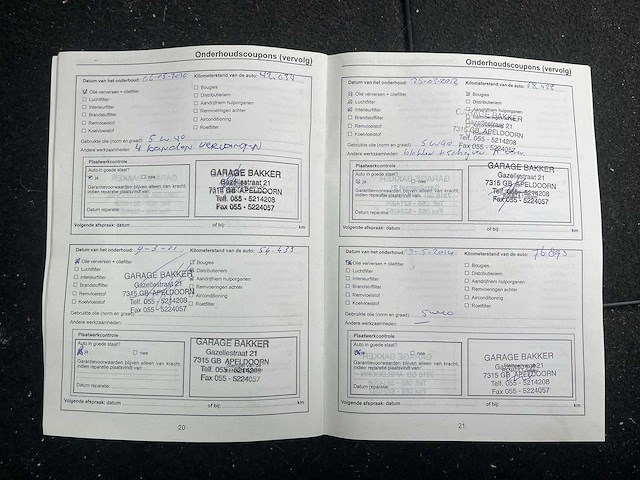 Onderhoudscoupons (vervolg)
Datum van het onderhoud: Kilometerstand van de auto:
Olie verversen + oliefilter
Luchtfilter
Interieurfilter
Brandstoffilter
Remvloeistof
Koelvloeistof
Bougies
Distributieriem
Aandrijfriem hulporganen
Remvoeringen achter
Airconditioning
Roetfilter
Gebruikte olie (norm en graad): 5W40
Andere werkzaamheden: 4 banden vervangen
Plaatwerkcontrole
Auto in goede staat?
ja nee
Garantievoorwaarden blijven alleen van kracht,
indien reparatie plaatsvindt van:
Datum reparatie:
GARAGE BAKKER
Gazellestraat 21
7315 GB APELDOORN
Telf. 055 - 5214208
Fax 055 - 5224057
Volgende afspraak: datum of bij: km
Datum van het onderhoud: Kilometerstand van de auto: 54.433
Olie verversen + oliefilter
Luchtfilter
Interieurfilter
Brandstoffilter
Remvloeistof
Koelvloeistof
Bougies
Distributieriem
Remvoeringen achter
Airconditioning
Roetfilter
GARAGE BAKKER
Gazellestraat 21
7315 GB APELDOORN
Telf. 055 - 5214208
Fax 055 - 5224057
Gebruikte olie (norm en graad):
Andere werkzaamheden:
Plaatwerkcontrole
Auto in goede staat?
ja nee
Garantievoorwaarden blijven alleen van kracht,
indien reparatie plaatsvindt van:
Datum reparatie:
GARAGE BAKKER
Gazellestraat 21
7315 GB APELDOORN
Telf. 055 - 5214208
Fax 055 - 5224057
Volgende afspraak: datum of bij: km
20
Onderhoudscoupons (vervolg)
Datum van het onderhoud: Kilometerstand van de auto:
Olie verversen + oliefilter
Luchtfilter
Interieurfilter
Brandstoffilter
Remvloeistof
Koelvloeistof
Bougies
Distributieriem
Aandrijfriem hulporganen
Airconditioning
Roetfilter
Gazellestraat 21
7315 GB APELDOORN
Telf. 055 - 5214208
Fax 055 - 5224057
Gebruikte olie (norm en graad): 5W40
Andere werkzaamheden:
Plaatwerkcontrole
Auto in goede staat?
ja nee
Garantievoorwaarden blijven alleen van kracht,
indien reparatie plaatsvindt van:
Datum reparatie:
GARAGE BAKKER
Gazellestraat 21
7315 GB APELDOORN
Telf. 055 - 5214208
Fax 055 - 5224057
Volgende afspraak: datum of bij: km
Datum van het onderhoud: Kilometerstand van de auto: 76893
Olie verversen + oliefilter
Luchtfilter
Interieurfilter
Brandstoffilter
Remvloeistof
Koelvloeistof
Bougies
Distributieriem
Aandrijfriem hulporganen
Remvoeringen achter
Airconditioning
Roetfilter
Gebruikte olie (norm en graad): 5W40
Andere werkzaamheden:
Plaatwerkcontrole
Auto in goede staat?
ja nee
Garantievoorwaarden blijven alleen van kracht,
indien reparatie plaatsvindt van:
Datum reparatie:
GARAGE BAKKER
Gazellestraat 21
7315 GB APELDOORN
Telf. 055 - 5214208
Fax 055 - 5224057
Volgende afspraak: datum of bij: km
21